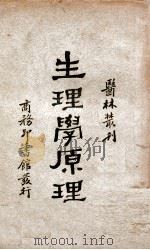 醫林叢刊
生理學原理
商務印書館發行